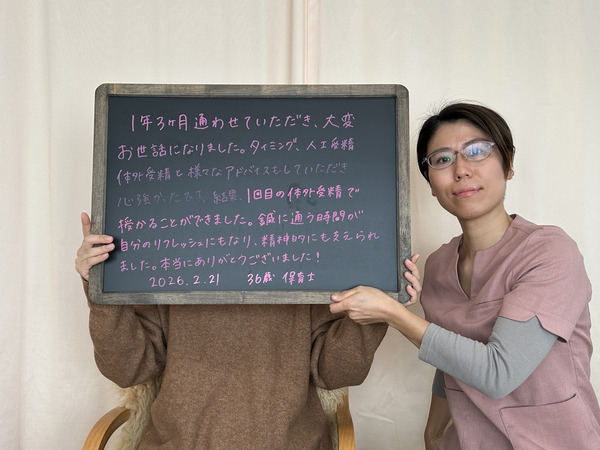 1年3ヶ月通わせていただき、大変
お世話になりました。タイミング、人工受精
体外受精と様々なアドバイスもしていただき
心強かったです。結果、1回目の体外受精で
授かることができました。鍼に通う時間が
自分のリフレッシュにもなり、精神的にも支えられ
ました。本当にありがとうございました！
2026.2.21 36歳 保育士